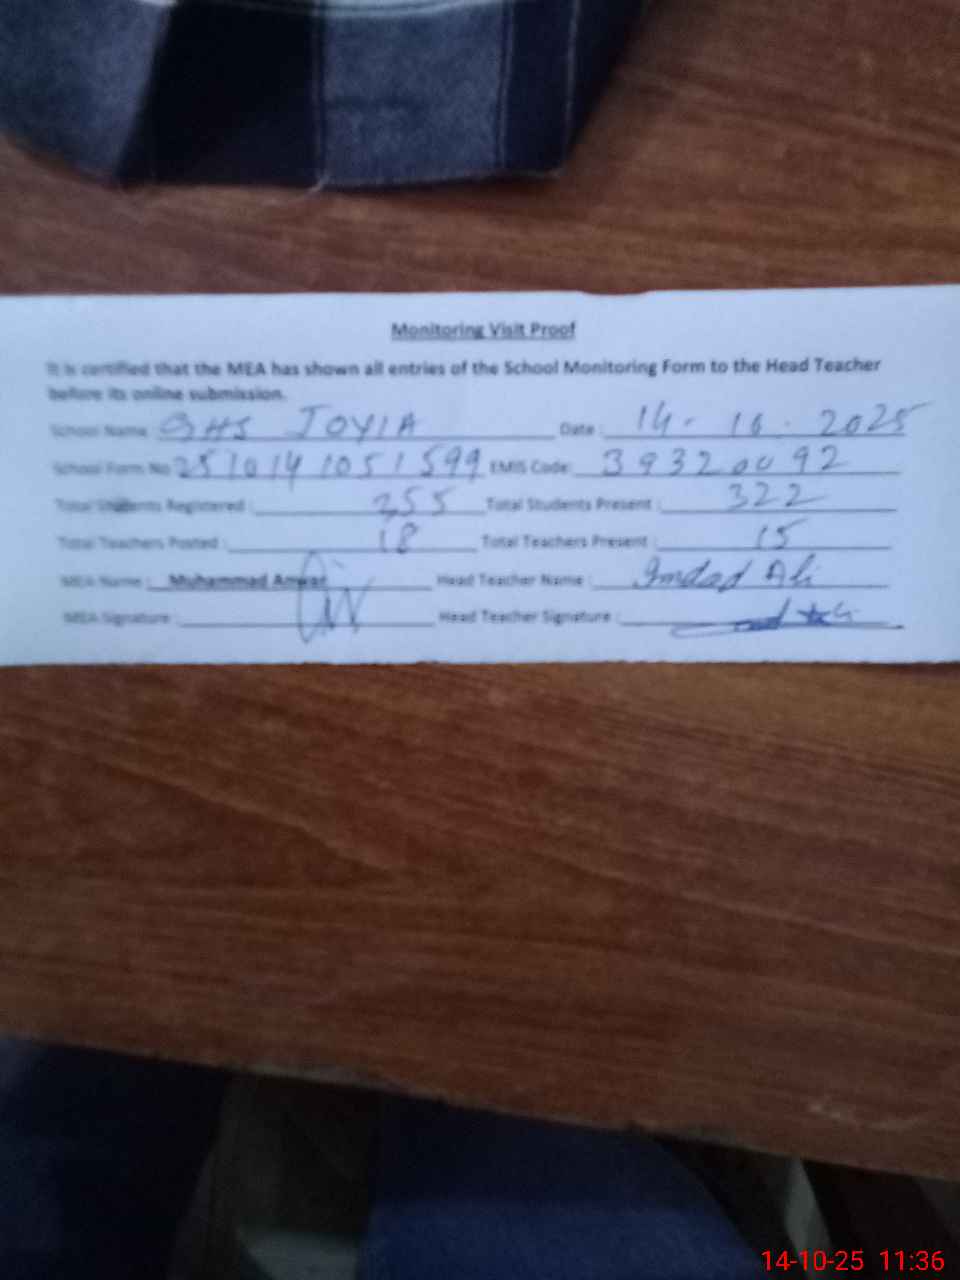 Monitoring Visit Proof
It is certified that the MEA has shown all entries of the School Monitoring Form to the Head Teacher
before its online submission.
School Name GHS JOYIA Date : 14 - 10 . 2025
School Form No 251014 1051599 EMIS Code: 39320092
Total Students Registered : 355 Total Students Present : 322
Total Teachers Posted : 18 Total Teachers Present : 15
MEA Name : Muhammad Anwar Head Teacher Name : Imdad Ali
MEA Signature : Head Teacher Signature :
14-10-25 11:36